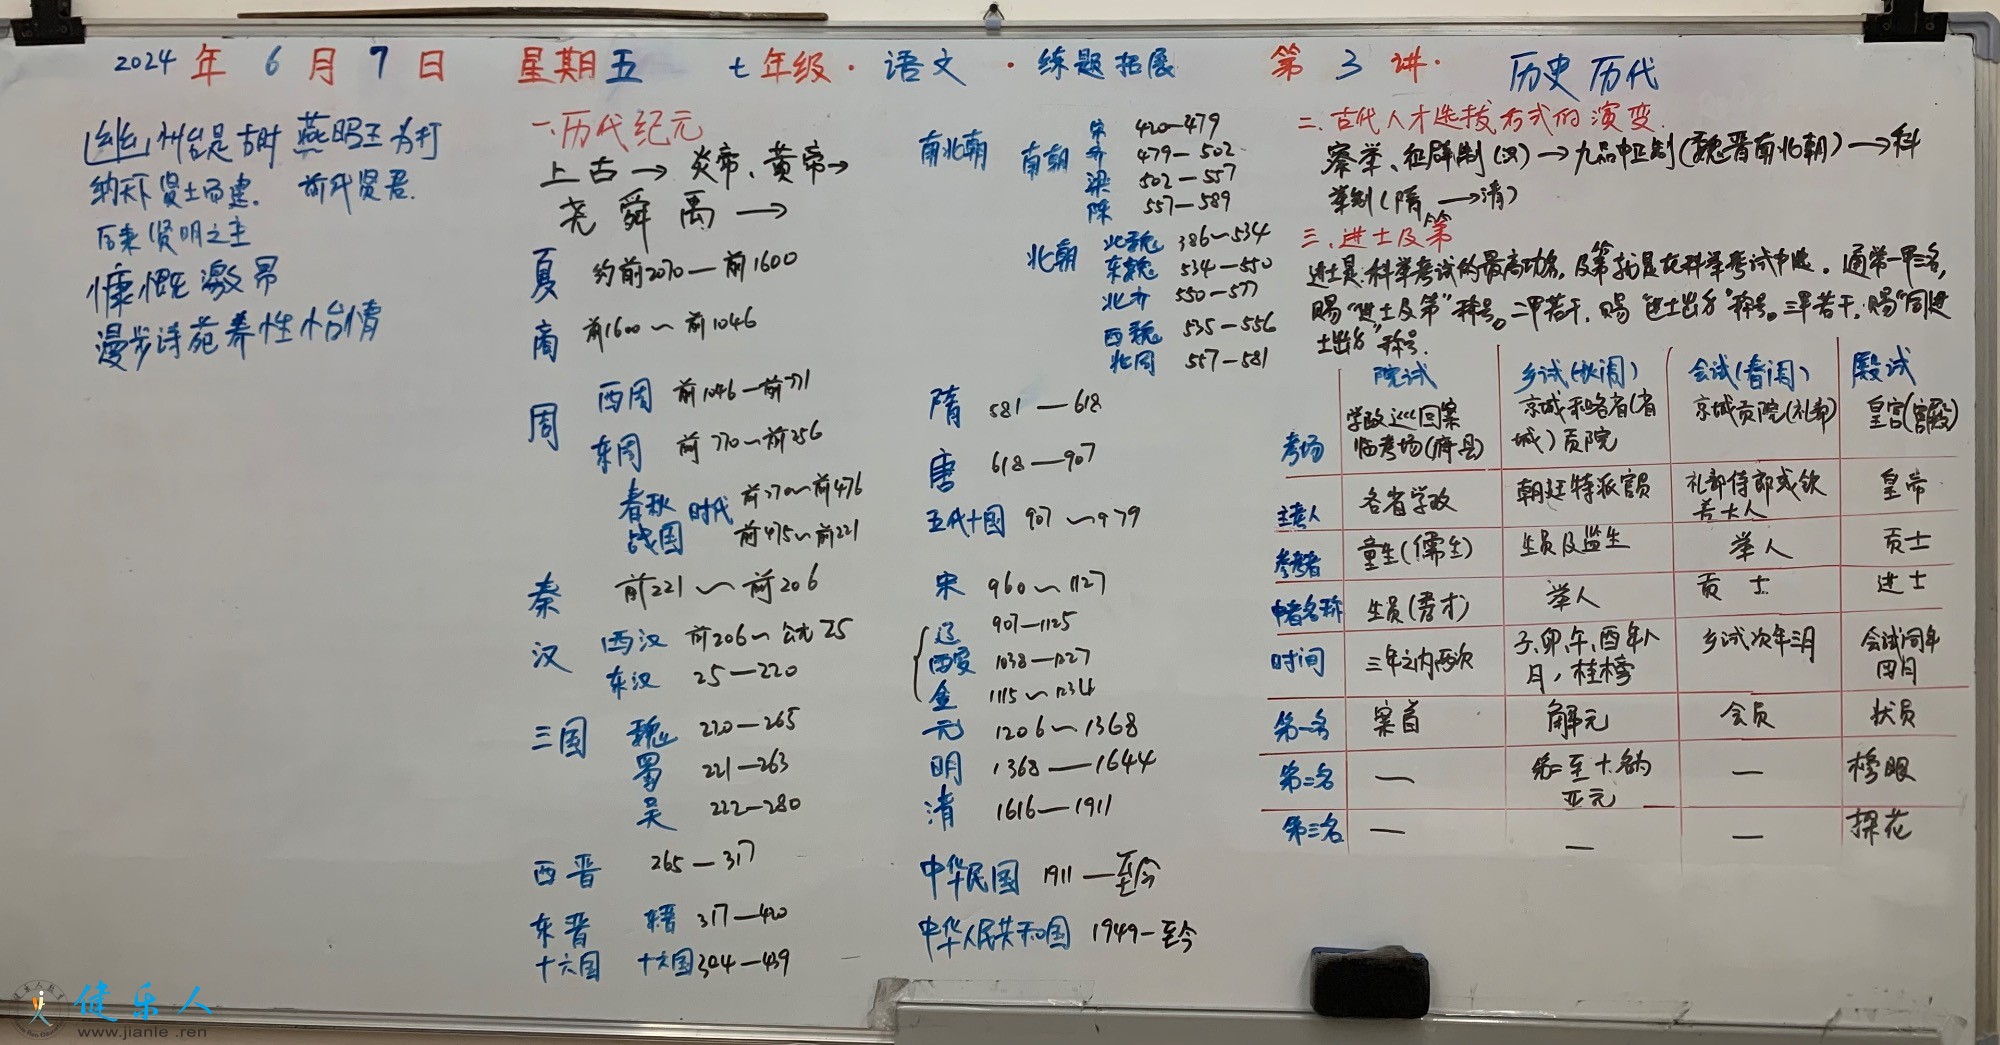 2024年6月7日 星期五 七年级·语文·练题拓展 第3讲· 历史历代
幽州台是古时燕昭王为打
纳天下贤士而建. 前代贤君.
后来贤明之主
慷慨激昂
漫步诗苑养性怡情
一.历代纪元
上古→炎帝、黄帝→
尧 舜 禹→
夏 约前2070—前1600
商 前1600~前1046
周 西周 前1046—前771
东周 前770~前256
春秋 时代 前770~前476
战国 前475~前221
秦 前221~前206
汉 西汉 前206~公元25
东汉 25—220
三国 魏 220—265
蜀 221—263
吴 222—280
西晋 265—317
东晋 东晋 317—420
十六国 十六国 304—439
南北朝 南朝 宋 420—479
齐 479—502
梁 502—557
陈 557—589
北朝 北魏 386~534
东魏 534—550
北齐 550—577
西魏 535—556
北周 557—581
隋 581—618
唐 618—907
五代十国 907~979
宋 960~1127
辽 907—1125
西夏 1038—1227
金 1115~1234
元 1206~1368
明 1368—1644
清 1616—1911
中华民国 1911—至今
中华人民共和国 1949—至今
二.古代人才选拔方式的演变.
察举、征辟制(汉)→九品中正制(魏晋南北朝)→科
举制(隋→清)
三.进士及第
进士是:科举考试的最高功名,及第就是在科举考试中选。通常一甲三名,
赐“进士及第”称号。二甲若干,赐“进士出身”称号。三甲若干,赐“同进
士出身”称号.
院试 乡试(秋闱) 会试(春闱) 殿试
考场 学政巡回案临考场(府县) 京城和各省(省城)贡院 京城贡院(礼部) 皇宫(宫殿)
主考人 各省学政 朝廷特派官员 礼部侍郎或钦差大人 皇帝
参考者 童生(儒生) 生员及监生 举人 贡士
中者名称 生员(秀才) 举人 贡士 进士
时间 三年之内两次 子、卯、午、酉年八月,桂榜 乡试次年三月 会试同年四月
第一名 案首 解元 会员 状员
第二名 — 第二至十名为亚元 — 榜眼
第三名 — — — 探花
健乐人
www.jianle.ren